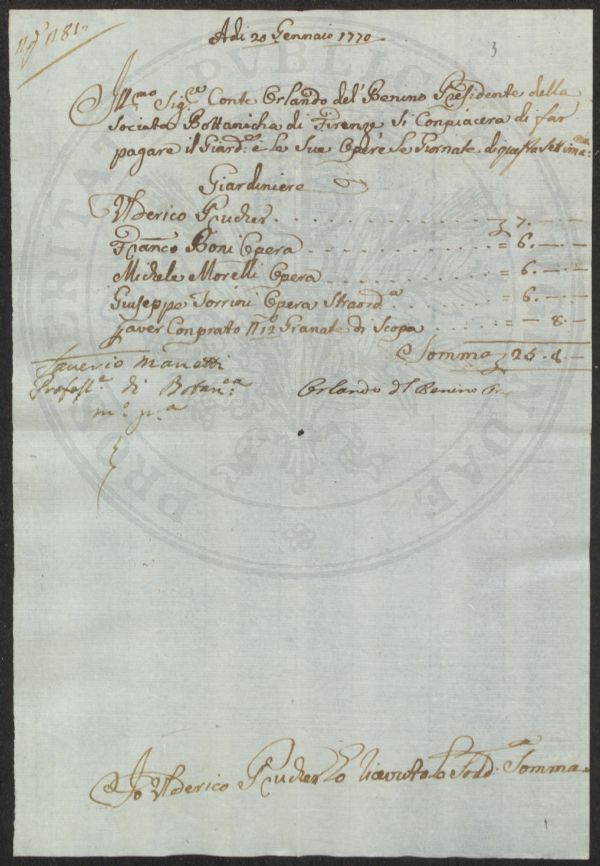 N.º 181.
Adi 20 Gennaio 1770
3
Ill.mo Sig.e Conte Orlando del' Benino Presidente della
Sociata Bottanicha di Firenze Si Conpiacera di far
pagare il Giard: e le Sue Opere le Giornate di questa Settima:na
Giardiniere
Uderico Prucher . . . . . 7. — —
Franco Boni Opera . . . . . = 6. — —
Michele Morelli Opera . . . . . = 6. — —
Giuseppe Torrini Opera Straord.a . . . = 6. — —
Javer Conprato N 12 Granate di Scopa . . . — 8. —
Somma 25. 8 —
Saverio Manetti
Profess.e di Botan:ca
m.o p.a
Orlando del Benino
Io Uderico Prucher ò ricevuto la Sodd:a Somma